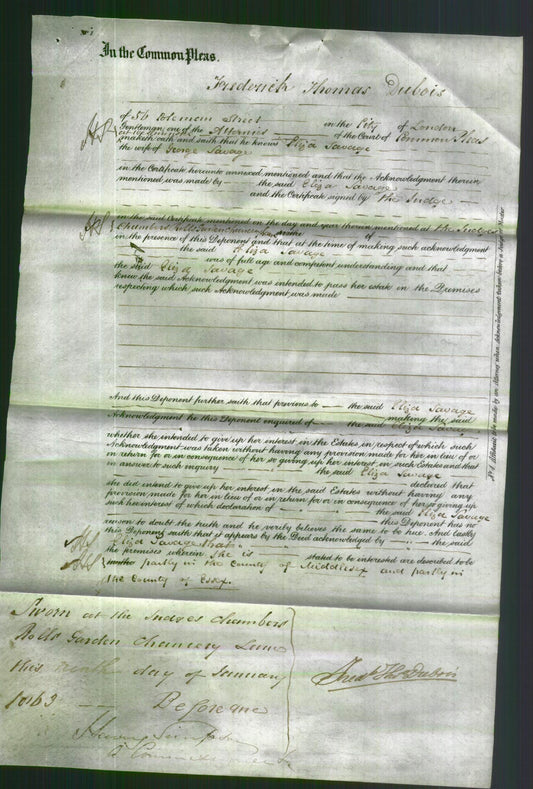 In the Common Pleas.
Frederick Thomas Dubois
of 56 Coleman Street in the City of London
Gentleman, one of the Attornies of the Court of Common Pleas
maketh oath and saith that he knows Eliza Savage
the wife of George Savage
in the Certificate hereunto annexed mentioned and that the Acknowledgment therein
mentioned was made by the said Eliza Savage
and the Certificate signed by the Judge
in the said Certificate mentioned on the day and year therein mentioned at the Judges
Chambers Rolls Garden Chancery Lane
in the presence of this Deponent and that at the time of making such acknowledgment
the said Eliza Savage
was of full age and competent understanding and that
the said Eliza Savage
knew the said Acknowledgment was intended to pass her estate in the Premises
respecting which such Acknowledgment was made
And this Deponent further saith that previous to the said Eliza Savage
making the said
Acknowledgment he this Deponent enquired of the said Eliza Savage
whether she intended to give up her interest in the Estates, in respect of which such
Acknowledgment was taken without having any provision made for her in lieu of or
in return for or in consequence of her so giving up her interest in such Estates and that
in answer to such inquiry the said Eliza Savage
declared that
she did intend to give up her interest in the said Estates without having any
provision made for her in lieu of or in return for or in consequence of her so giving up
such her interest of which declaration of the said Eliza Savage
this Deponent has no
reason to doubt the truth and he verily believes the same to be true. And lastly
this Deponent saith that it appears by the Deed acknowledged by the said
Eliza Savage that
the premises wherein she is stated to be interested are described to be
partly in the County of Middlesex and partly in
the County of Essex.
Sworn at the Judges Chambers
Rolls Garden Chancery Lane
this ninth day of January
1863 Before me
Fredk Thos Dubois